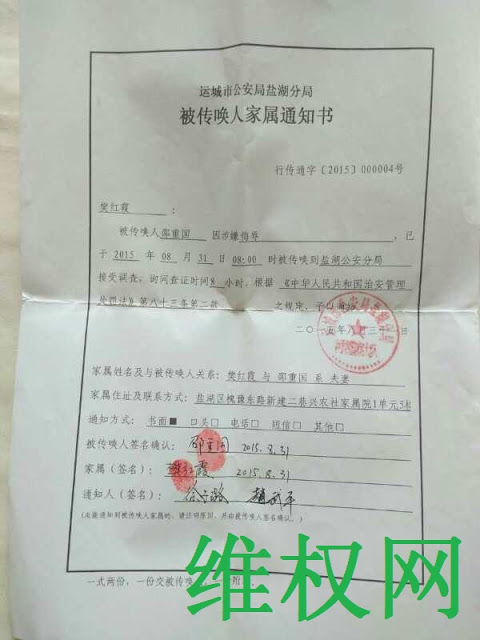 运城市公安局盐湖分局
被传唤人家属通知书
行传通字〔2015〕000004号
樊红霞 :
被传唤人邵重国 因涉嫌倒卖 ,已
于 2015 年 08 月 31 日08:00 时被传唤到盐湖公安分局
接受调查。询问查证时间8 小时,根据 《中华人民共和国治安管理
处罚法》第八十三条第二款 之规定,予以
二〇一五年八月三十 日
家属姓名及与被传唤人关系:樊红霞 与 邵重国 系 夫妻
家属住址及联系方式:盐湖区槐 东路新建二巷兴农社家属院1单元5
通知方式: 书面■ 口头□ 电话□ 短信□ 其他□
被传唤人签名确认: 邵重国 2015.8.31
家属(签名): 樊红霞 2015.8.31
通知人(签名):
(未能通知到被传唤人家属的,请注明原因,并由被传唤人签名确认。)
一式两份,一份交被传唤 一 附
维权网